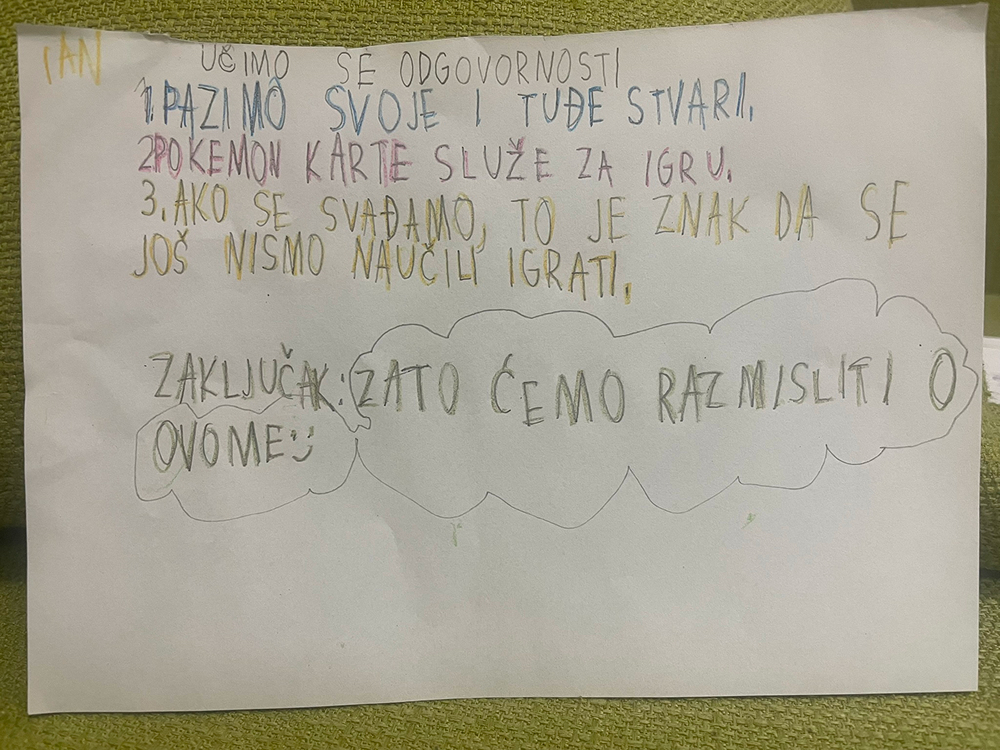 IAN
UČIMO SE ODGOVORNOSTI
1. PAZIMO SVOJE I TUĐE STVARI.
2 POKEMON KARTE SLUŽE ZA IGRU.
3. AKO SE SVAĐAMO, TO JE ZNAK DA SE
JOŠ NISMO NAUČILI IGRATI.
ZAKLJUČAK: ZATO ĆEMO RAZMISLITI O
OVOME :)